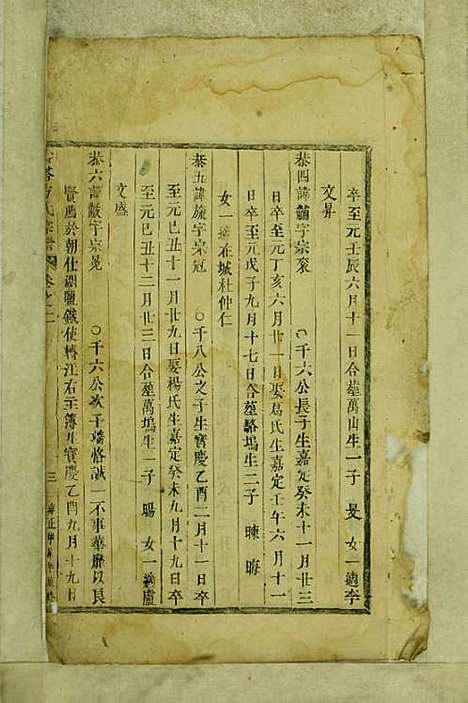 卒至元壬辰六月十一日合塟萬山生一子 旻 女一適李
文昇
恭四諱黼字宗袞 ○千六公長子生嘉定癸未十一月廿三
日卒至元丁亥六月廿一日娶葛氏生嘉定壬午六月十一
日卒至元戊子九月十七日合塟駱塢生二子 暕 晦
女一適在城杜仲仁
恭五諱旒字宗冠 ○千八公之子生寳慶乙酉二月十一日卒
至元辛巳十一月廿九日娶楊氏生嘉定癸未九月十九日卒
至元己丑十二月廿三日合塟萬塢生一子 暘 女一適盧
文盛
恭六諱黻字宗冕 ○千六公次子端恪誠一不事華靡以良
賢薦於朝仕 鹽鐵使轉江右主簿 寳慶乙酉九月十九日
氏宗譜 卷之二 三